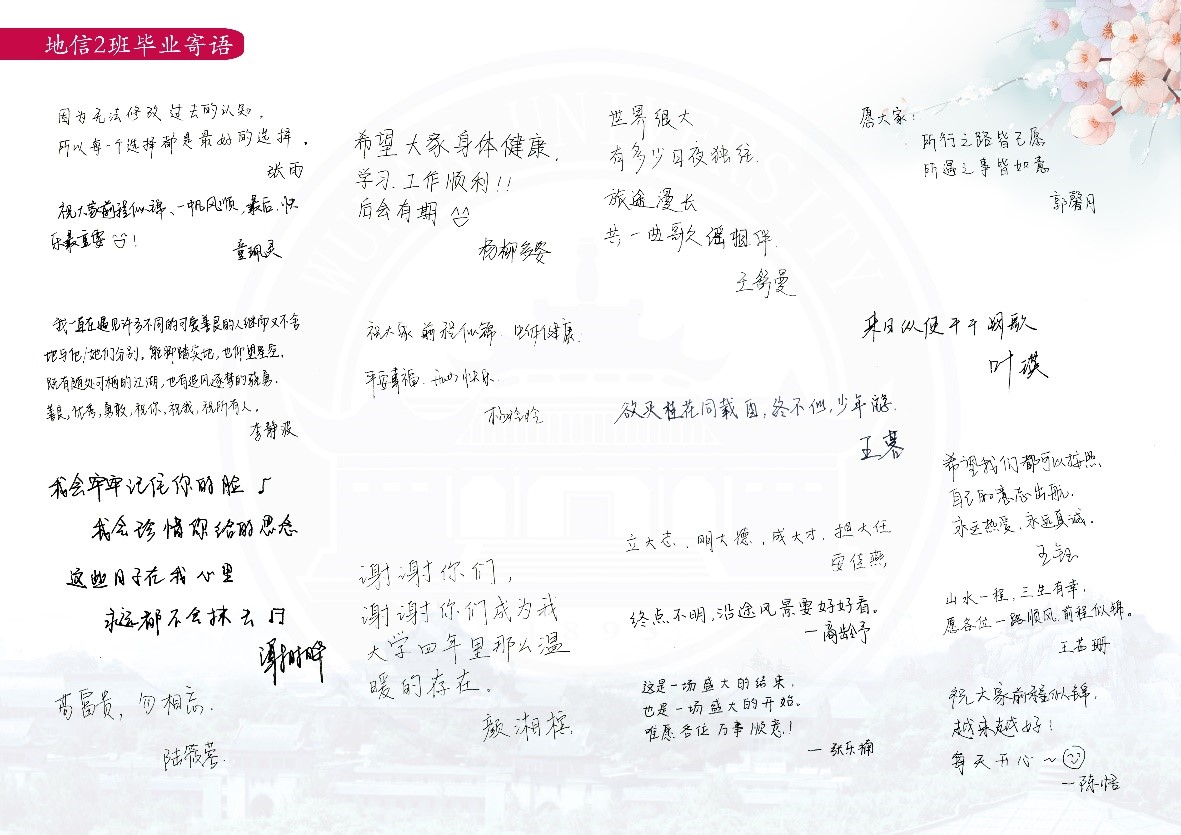 地信2班毕业寄语
因为无法修改过去的认知,
所以每一个选择都是最好的选择。
张雨
祝大家前程似锦、一帆风顺,最后,快
乐最重要!
童珮灵
希望大家身体健康,
学习、工作顺利!!
后会有期
杨柳多姿
世界很大
有多少日夜独往.
旅途漫长
共一曲歌谣相伴.
王舒曼
愿大家:
所行之路皆己愿
所遇之事皆如意
郭馨月
我一直在遇见许多不同的可爱善良的人继而又不舍
地与他/她们分别。能脚踏实地,也仰望星空。
既有随处可栖的江湖,也有追风逐梦的骁勇.
善良,优秀,勇敢,祝你,祝我,祝所有人。
李静波
祝大家前程似锦. 身体健康.
平安幸福. 快乐.
来日纵使千千阕歌
叶琪
欲买桂花同载酒,终不似,少年游.
王暮
我会牢牢记住你的脸♪
我会珍惜你给的思念
这些日子在我心里
永远都不会抹去♫
谭树晔
希望我们都可以按照,
自己的意志出航.
永远热爱,永远真诚.
王钰
立大志,明大德,成大才,担大任
安佳燕
谢谢你们,
谢谢你们成为我
大学四年里那么温
暖的存在。
颜湘榕
终点不明,沿途风景要好好看。
—高龄予
山水一程,三生有幸,
愿各位一路顺风,前程似锦。
王若珊
苟富贵,勿相忘.
陆筱萱.
这是一场盛大的结束,
也是一场盛大的开始。
唯愿各位万事顺意!
—张乐楠
祝大家前程似锦,
越来越好!
每天开心~
—陈悟